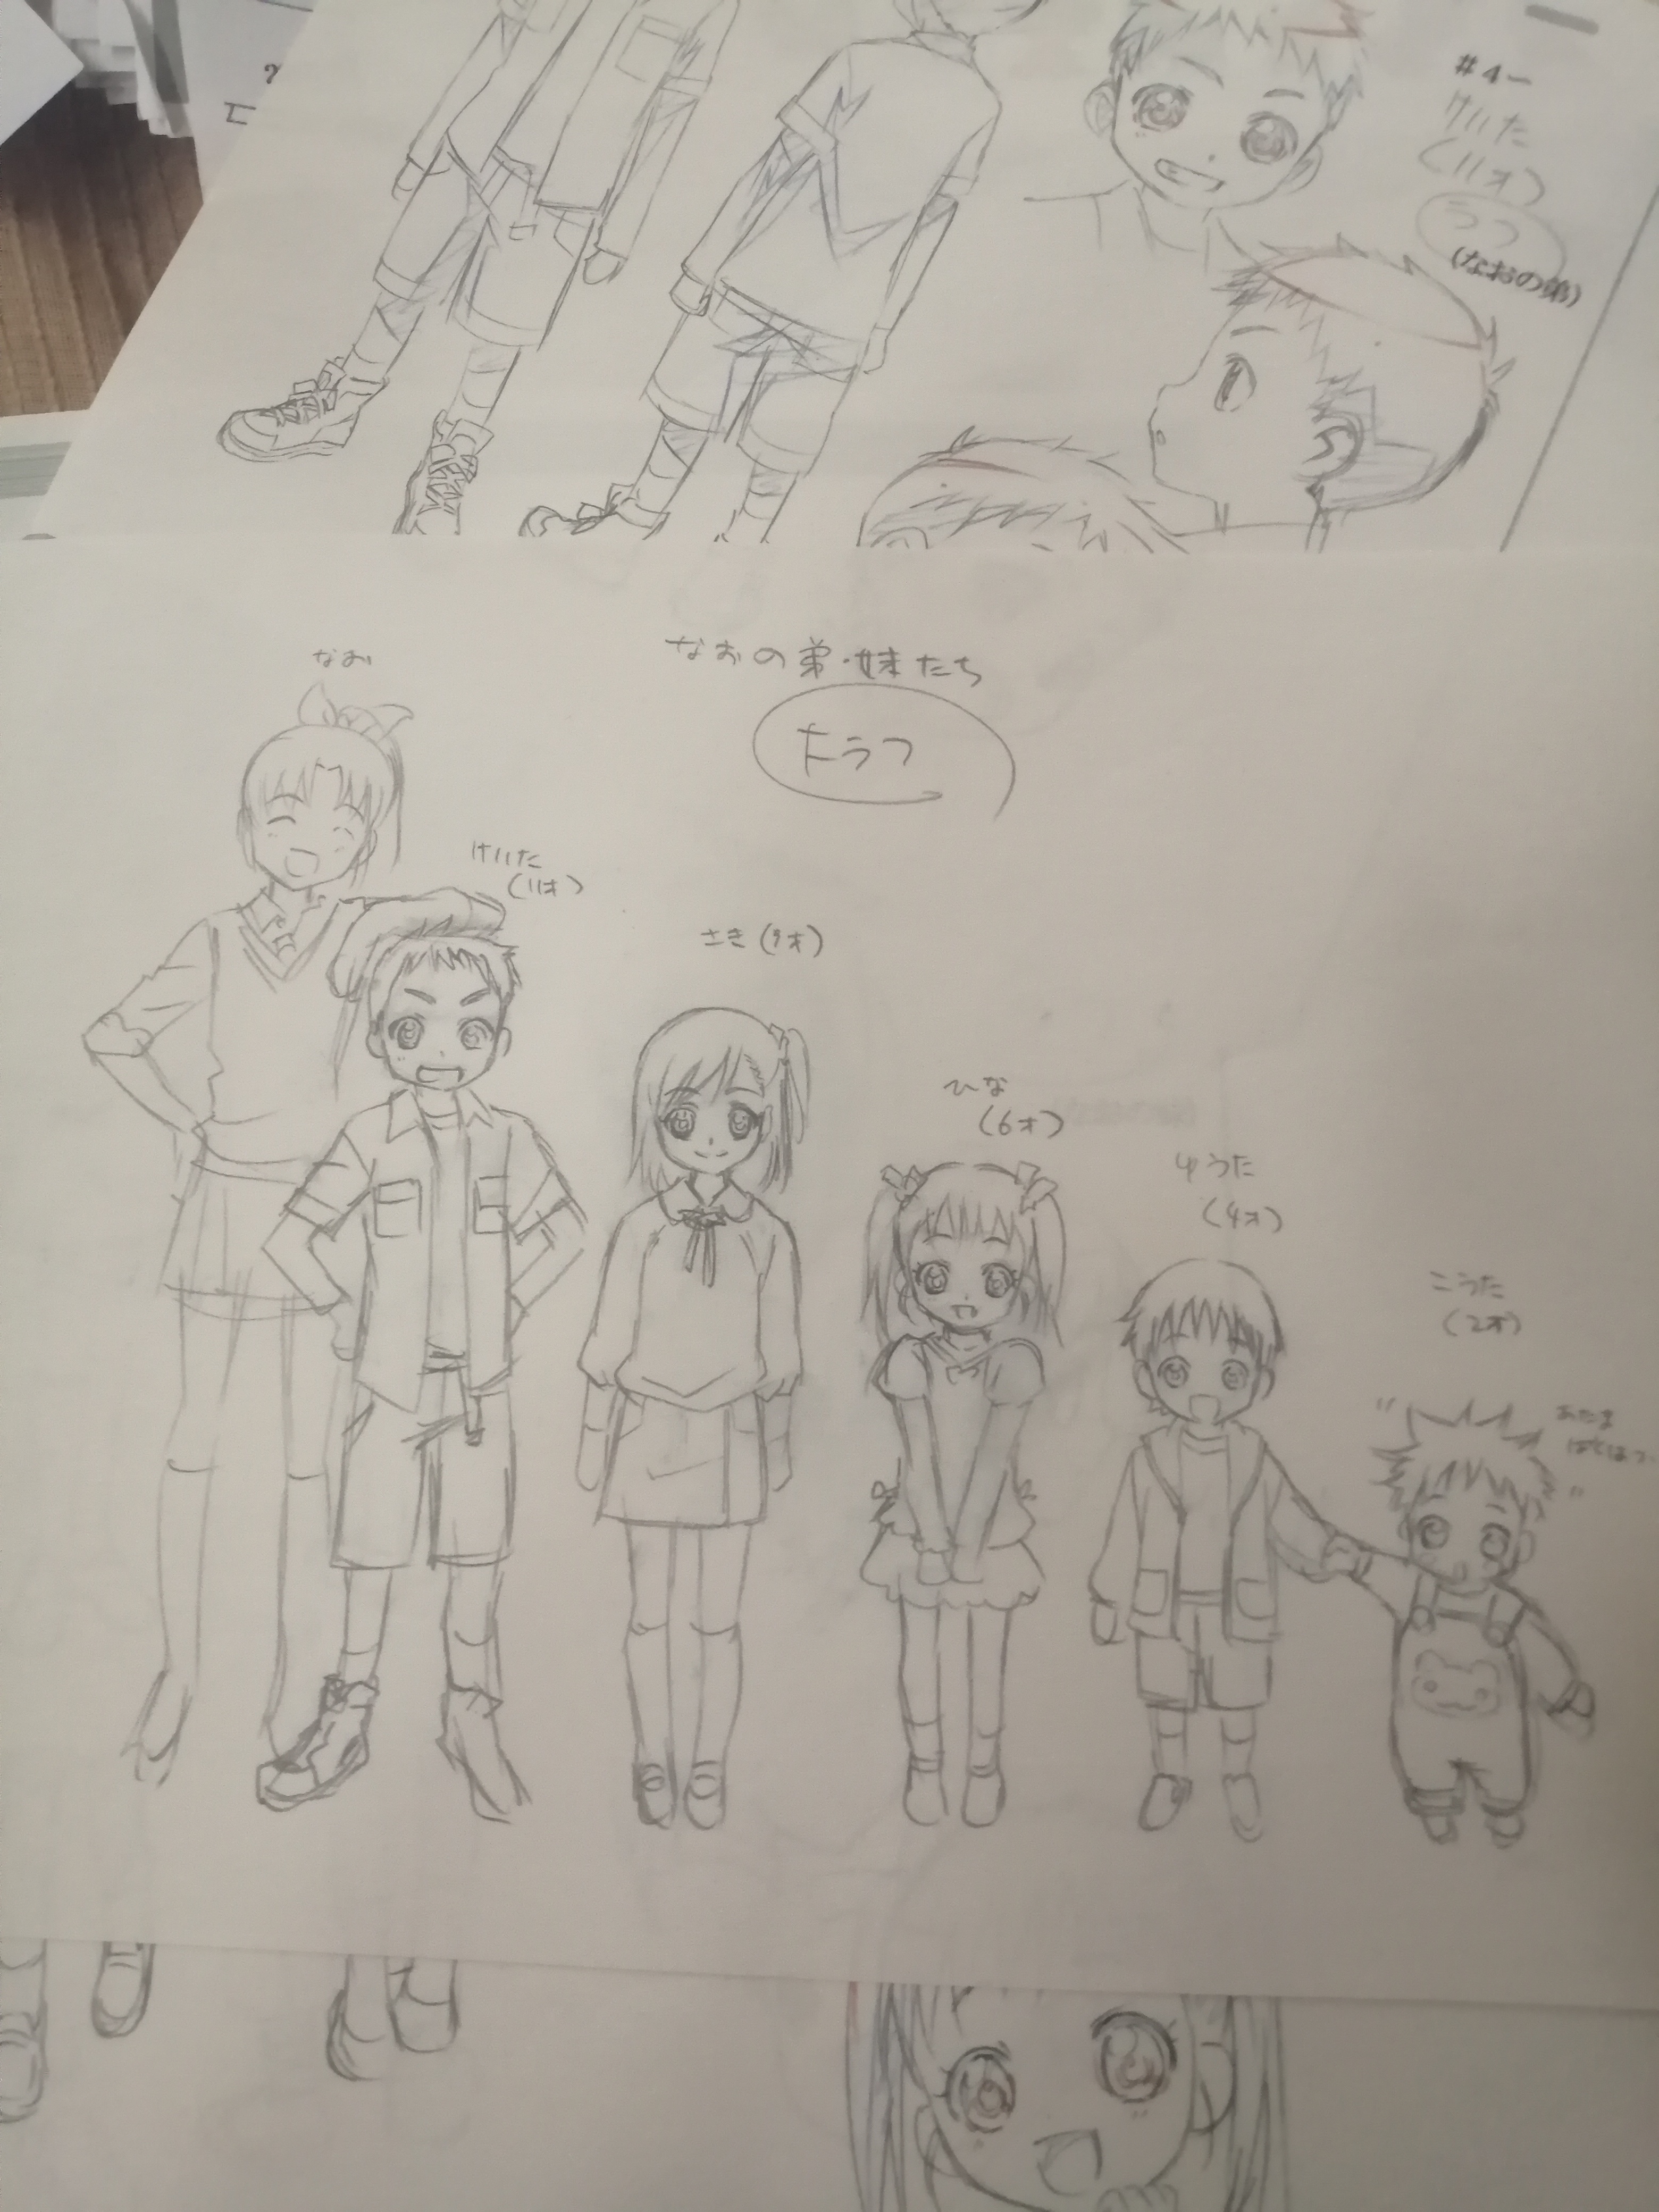 #4-
けいた
(11才)
ラフ
(なおの弟)
なお
なおの弟・妹たち
大ラフ
けいた
(11才)
さき(9才)
ひな
(6才)
ゆうた
(4才)
こうた
(2才)
あたま